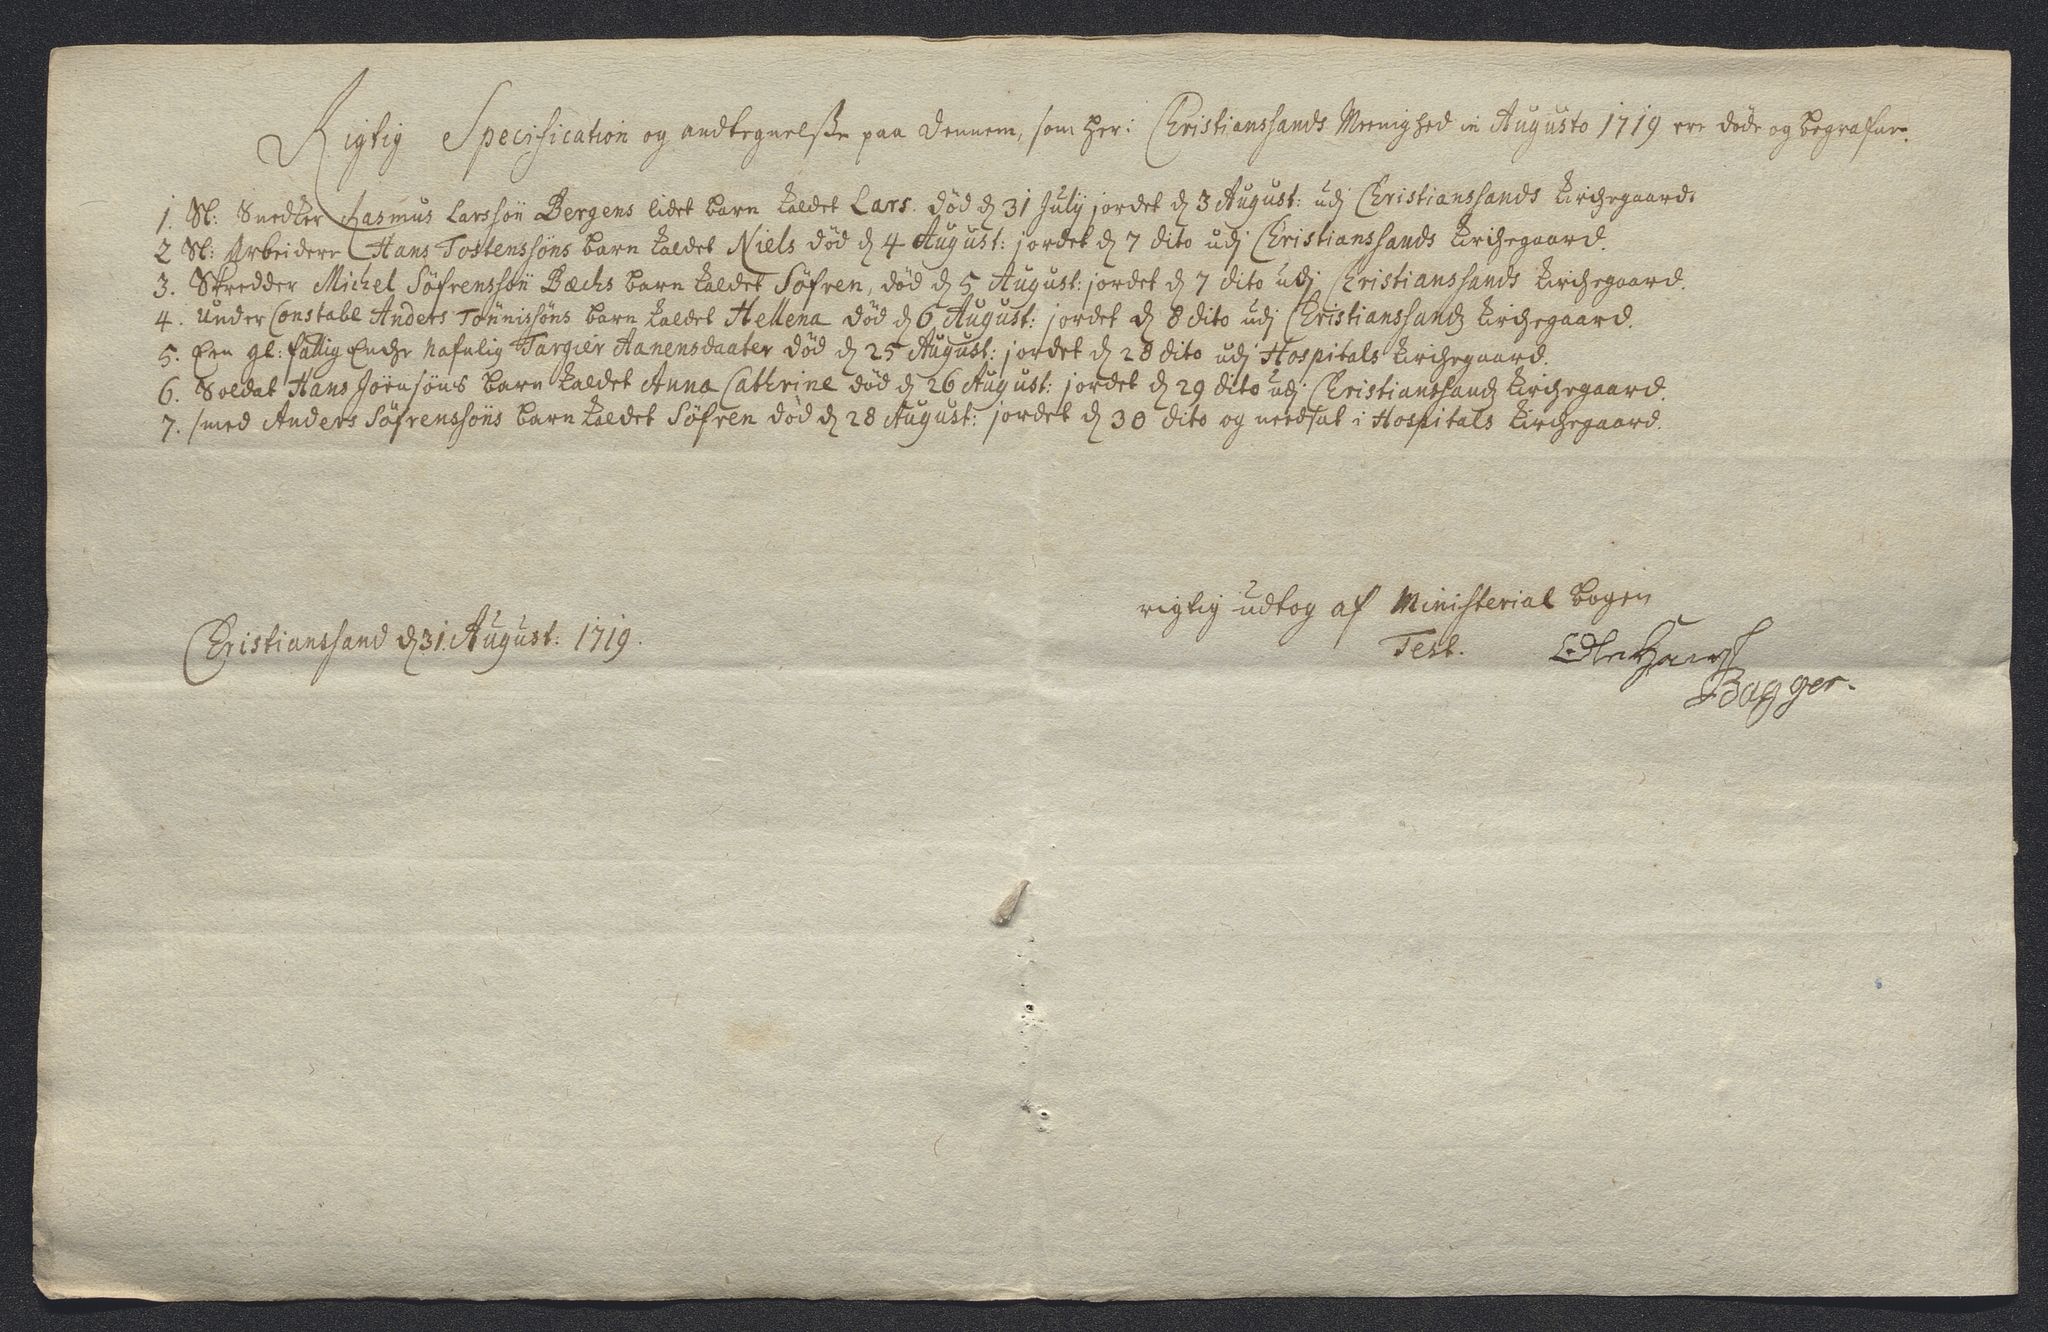 Rigtig Specification og andtegnelsse paa dennem, som her i Christianssands Meenighed in Augusto 1719 ere døde og begrafne.
1. Sl: Snedker Rasmus Larssøn Bergens lidet barn kaldet Lars. død d 31 Julÿ jordet d 3 August: udj Christianssands Kirchegaard.
2 Sl: Arbeidere Hans Tostenssøns barn kaldet Niels død d 4 August: jordet d 7 dito udj Christianssands Kirchegaard.
3. Skredder Michel Søfrenssøn Bæchs barn kaldet Søfren, død d 5 August: jordet d 7 dito udj Christianssands Kirchegaard.
4. Under Constabl Anders Tønnissøns barn kaldet Hellena død d 6 August: jordet d 8 dito udj Christianssands Kirchegaard.
5. Een gl: fattig Enche nafnlig Targier Aanensdaater død d 25 August: jordet d 28 dito udj Hospitals Kirchegaard.
6. Soldat Hans Jørensøns barn kaldet Anna Cathrine død d 26 August: jordet d 29 dito udj Christianssands Kirchegaard.
7. smed Anders Søfrenssøns barn kaldet Søfren død d 28 August: jordet d 30 dito og needsat i Hospitals Kirchegaard.
rigtig udtog af Ministerial bogen
Christianssand d 31. August: 1719.
Test.
Bagger.